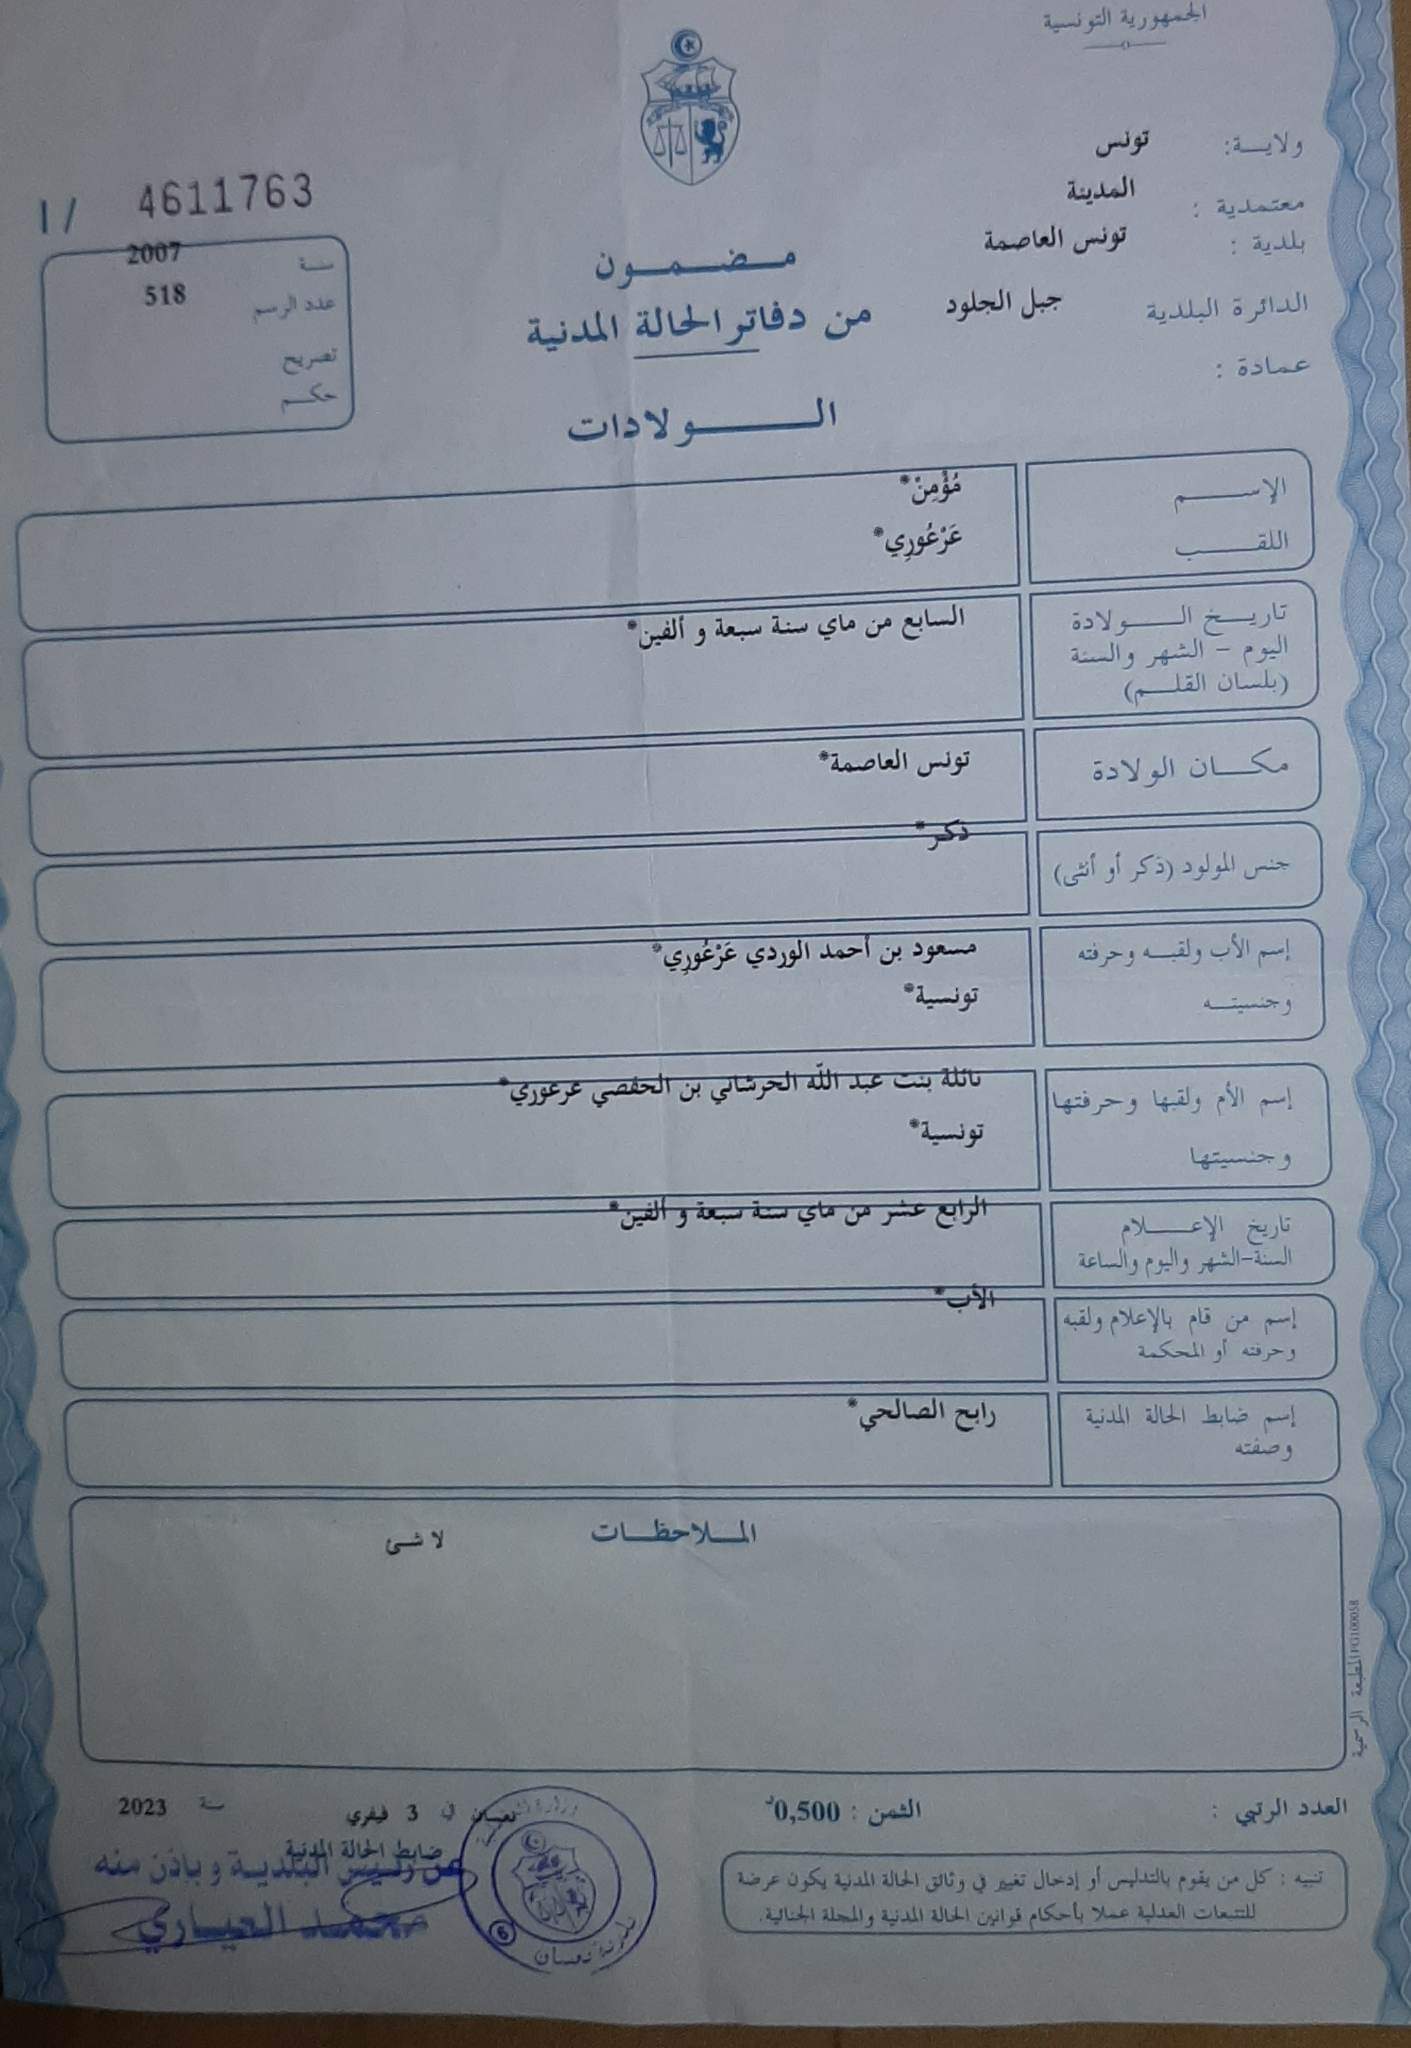 الجمهورية التونسية
ولاية: تونس
معتمدية : المدينة
بلدية : تونس العاصمة
الدائرة البلدية جبل الجلود
عمادة :
I / 4611763
سنة 2007
عدد الرسم 518
تصريح
حكم
مضمون
من دفاتر الحالة المدنية
الولادات
الإسم مُؤْمِنْ*
اللقب عَرْعُورِي*
تاريخ الولادة
اليوم - الشهر والسنة
(بلسان القلم)
السابع من ماي سنة سبعة و ألفين*
مكان الولادة تونس العاصمة*
جنس المولود (ذكر أو أنثى) ذكر*
إسم الأب ولقبه وحرفته
وجنسيته
مسعود بن أحمد الوردي عَرْعُورِي*
تونسية*
إسم الأم ولقبها وحرفتها
وجنسيتها
نائلة بنت عبد اللّه الحرشاني بن الحفصي عرعوري*
تونسية*
تاريخ الإعلام
السنة-الشهر واليوم والساعة
الرابع عشر من ماي سنة سبعة و ألفين*
إسم من قام بالإعلام ولقبه
وحرفته أو المحكمة
الأب*
إسم ضابط الحالة المدنية
وصفته
رابح الصالحي*
الملاحظات لا شئ
المطبعة الرسمية PG100058
العدد الرتبي :
الثمن : 0,500د
نعسان في 3 فيفري سنة 2023
ضابط الحالة المدنية
عن رئيس البلدية وبإذن منه
محمد العياري
بلدية نعسان
6
تنبيه : كل من يقوم بالتدليس أو إدخال تغيير في وثائق الحالة المدنية يكون عرضة
للتتبعات العدلية عملا بأحكام قوانين الحالة المدنية والمجلة الجنائية.